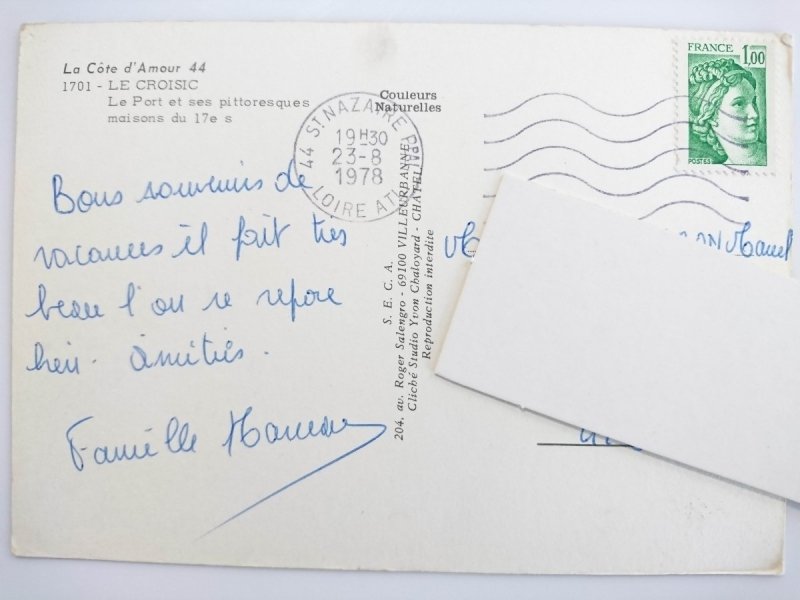 La Côte d'Amour 44
1701 - LE CROISIC
Le Port et ses pittoresques
maisons du 17e s
Couleurs
Naturelles
44 ST NAZAIRE PPAL
19H30
23-8
1978
LOIRE ATL
FRANCE
1,00
POSTES
Bons souvenirs de
vacances il fait très
beau l'on se repose
bien. amitiés.
Famille
S. E. C. A.
204, av. Roger Salengro - 69100 VILLEURBANNE
Cliché Studio Yvon Chaloyard - CHATEL
Reproduction interdite
Marcel